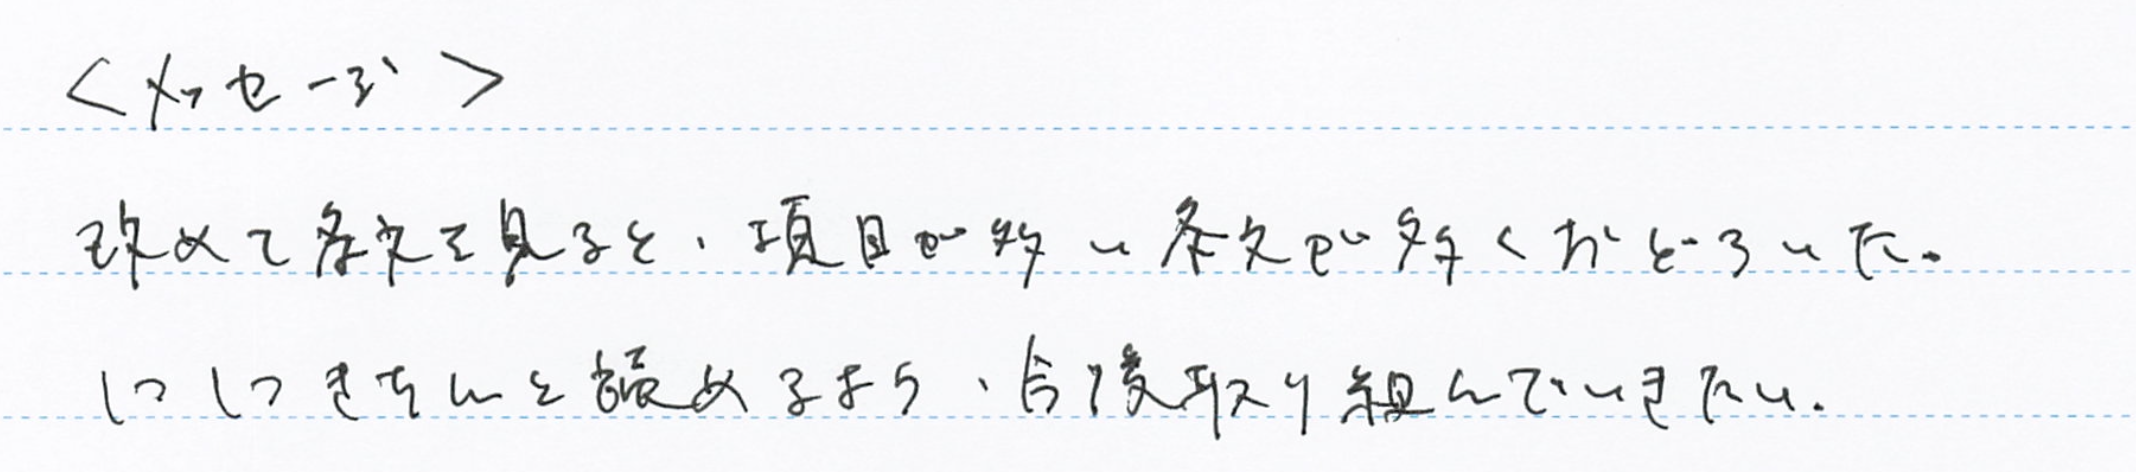 <メッセージ>
改めて条文を見ると、項目が多い条文が多くおどろいた。
1つ1つきちんと読めるよう、今後取り組んでいきたい。